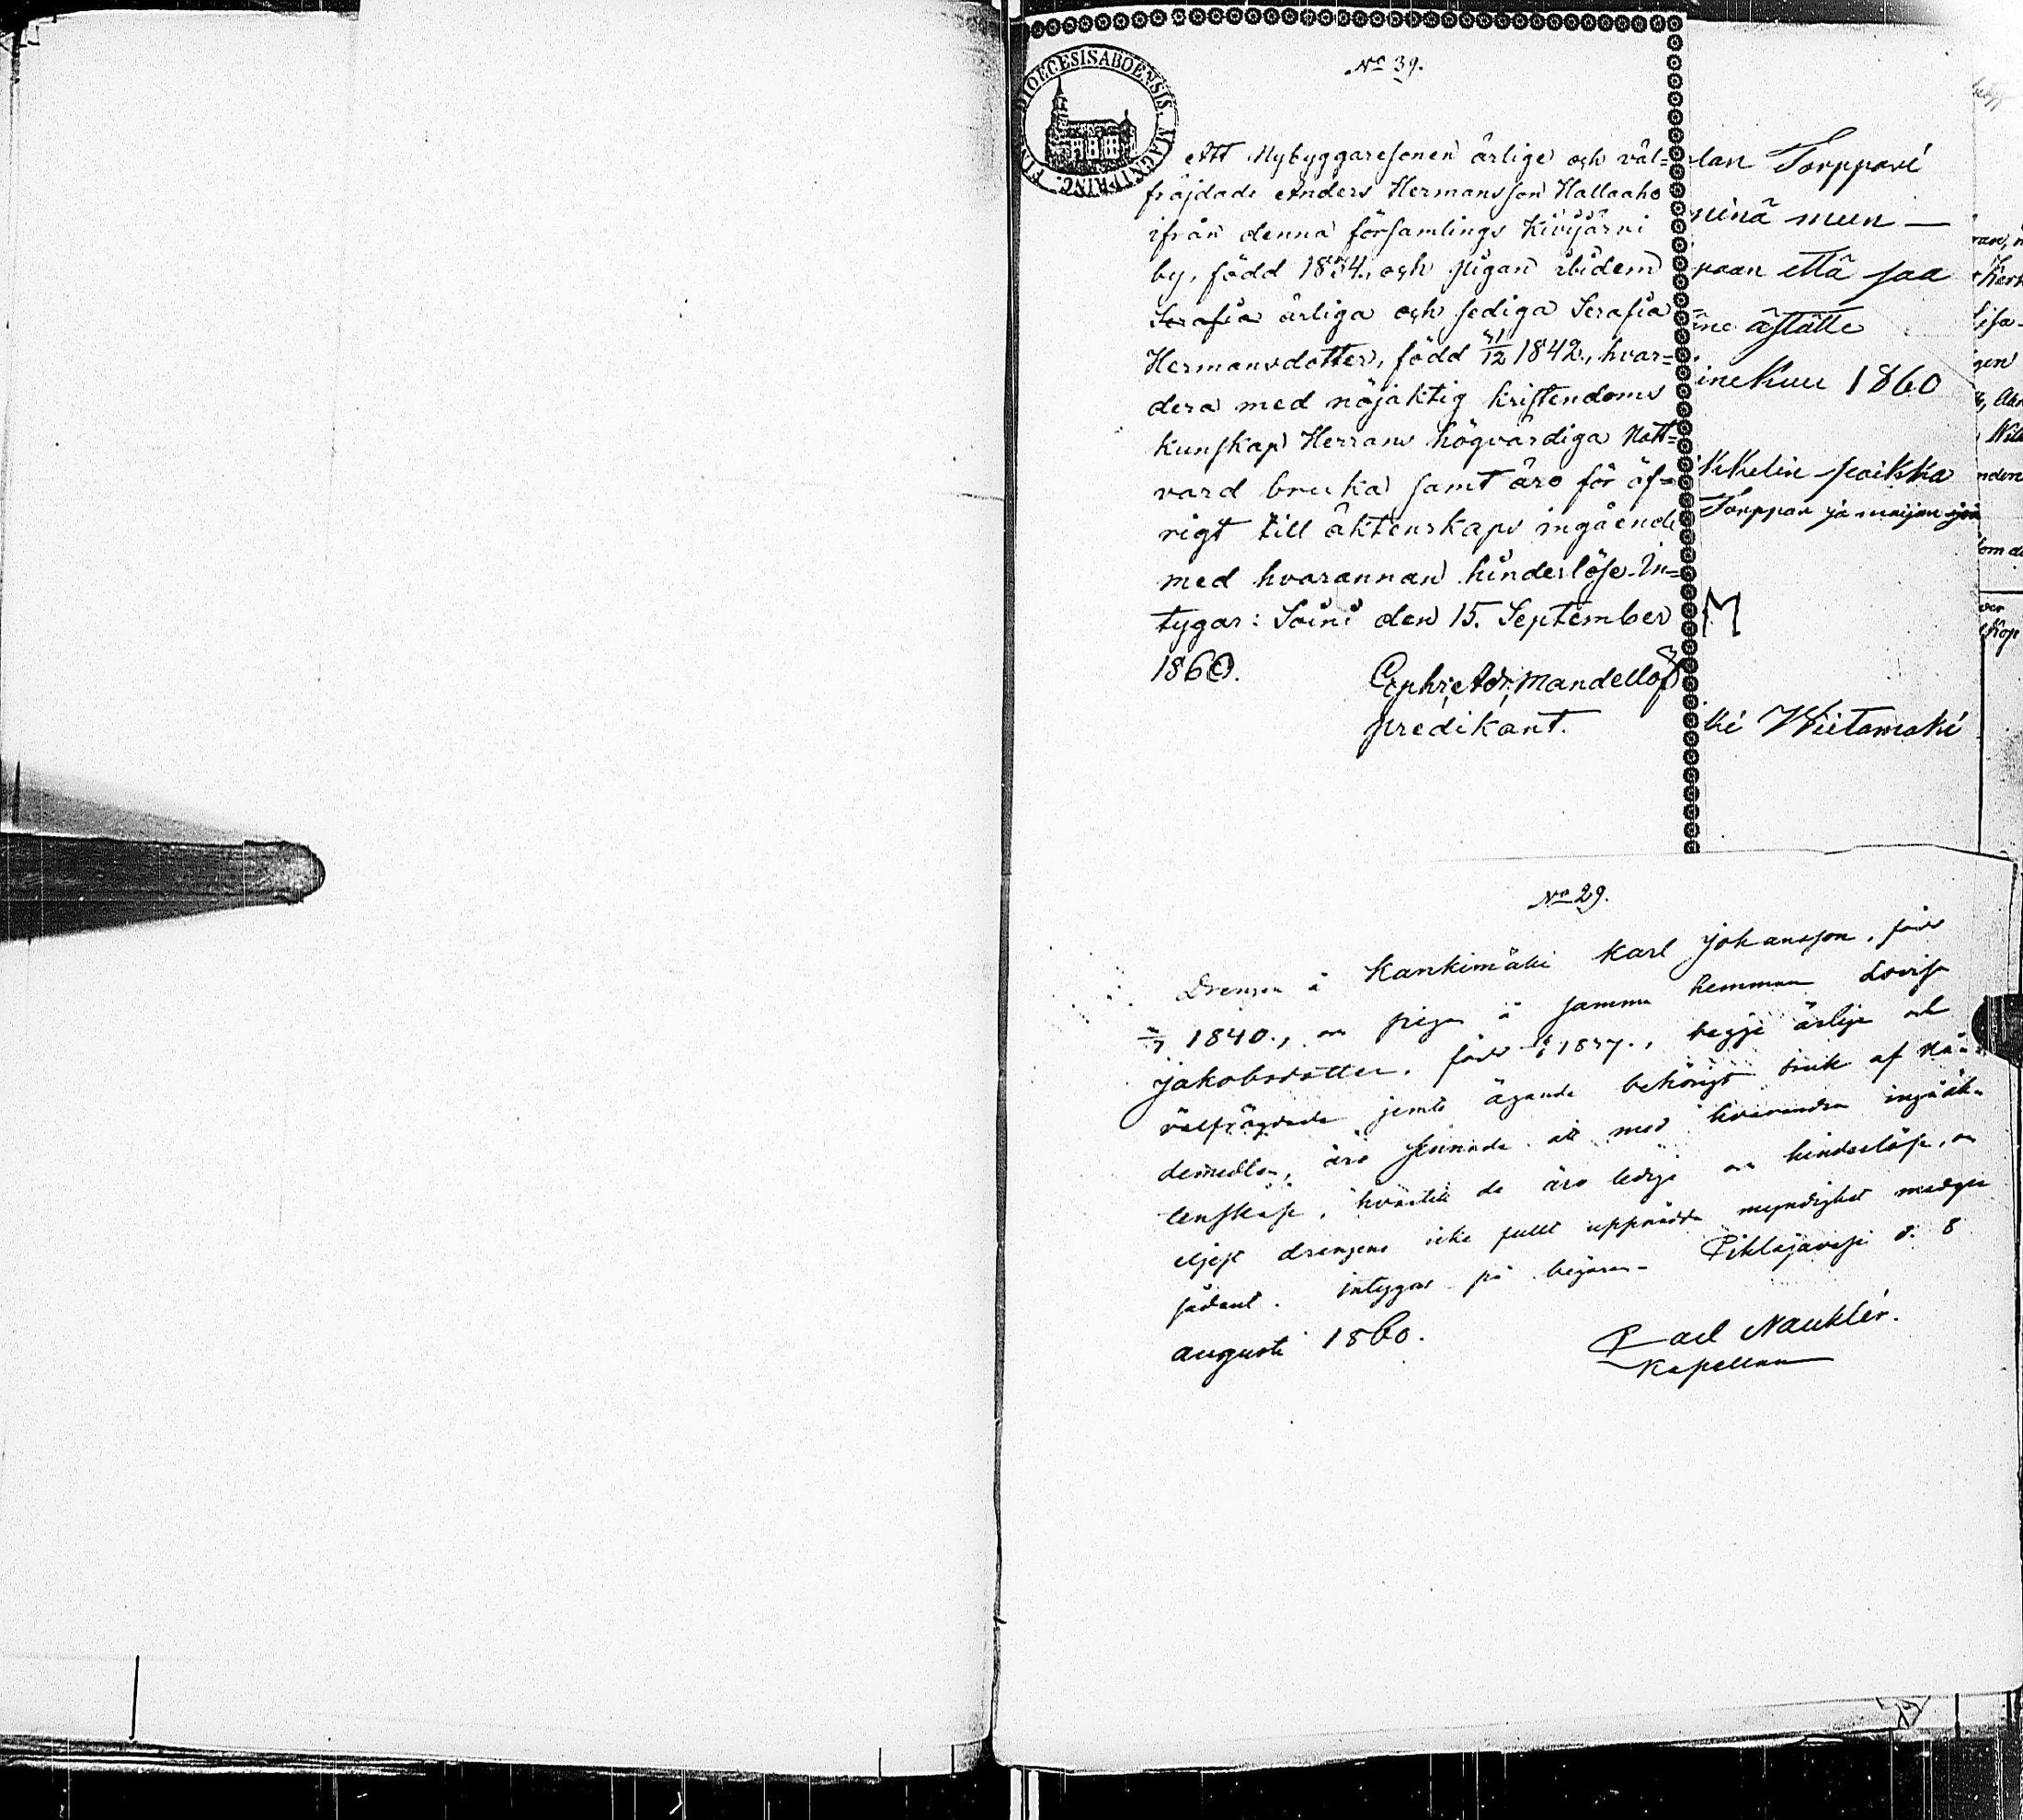 DIOECESIS ABOENSIS. MAGNI PRINC. FI
No 39.
Att Nybyggaresonen ärlige och väl=
fräjdade Anders Hermansson Hallaaho
ifrån denna församlings Kivijärvi
by, född 1834., och pigan ibidem
Serafia ärliga och sediga Serafia
Hermansdotter, född 31/12 1842., hvar=
dera med nöjaktig kristendoms
kunskap Herrans högvärdiga Natt=
vard bruka samt äro för öf=
rigt till äktenskaps ingående
med hvarannan hinderlöse. In=
tygar: Soini den 15. September
1860.
Ephr. Adr. Mandellöf
predikant.
lan Torppari
ninä muun —
vaan että saa
ine ästätte
inekuu 1860
kkelin poikka
Torppar ja
M
ki Wiitamäki
No 29.
Drengen å Kankimäki Karl Johansson, född
/7 1840., och pigan å samma hemman Lovisa
Jakobsdotter, född 1837., begge ärlige och
välfrägdade jemte ägande behörigt bruk af Nå=
demedlen, äro sinnade att med hvarandra ingå äk=
tenskap, hvartill de äro ledige och hinderlöse, om
eljest drengens icke fullt uppnådda myndighet medger
sådant. intygas på begäran. Pihlajavesi d. 8
augusti 1860.
Carl Nauklér.
Kapellan